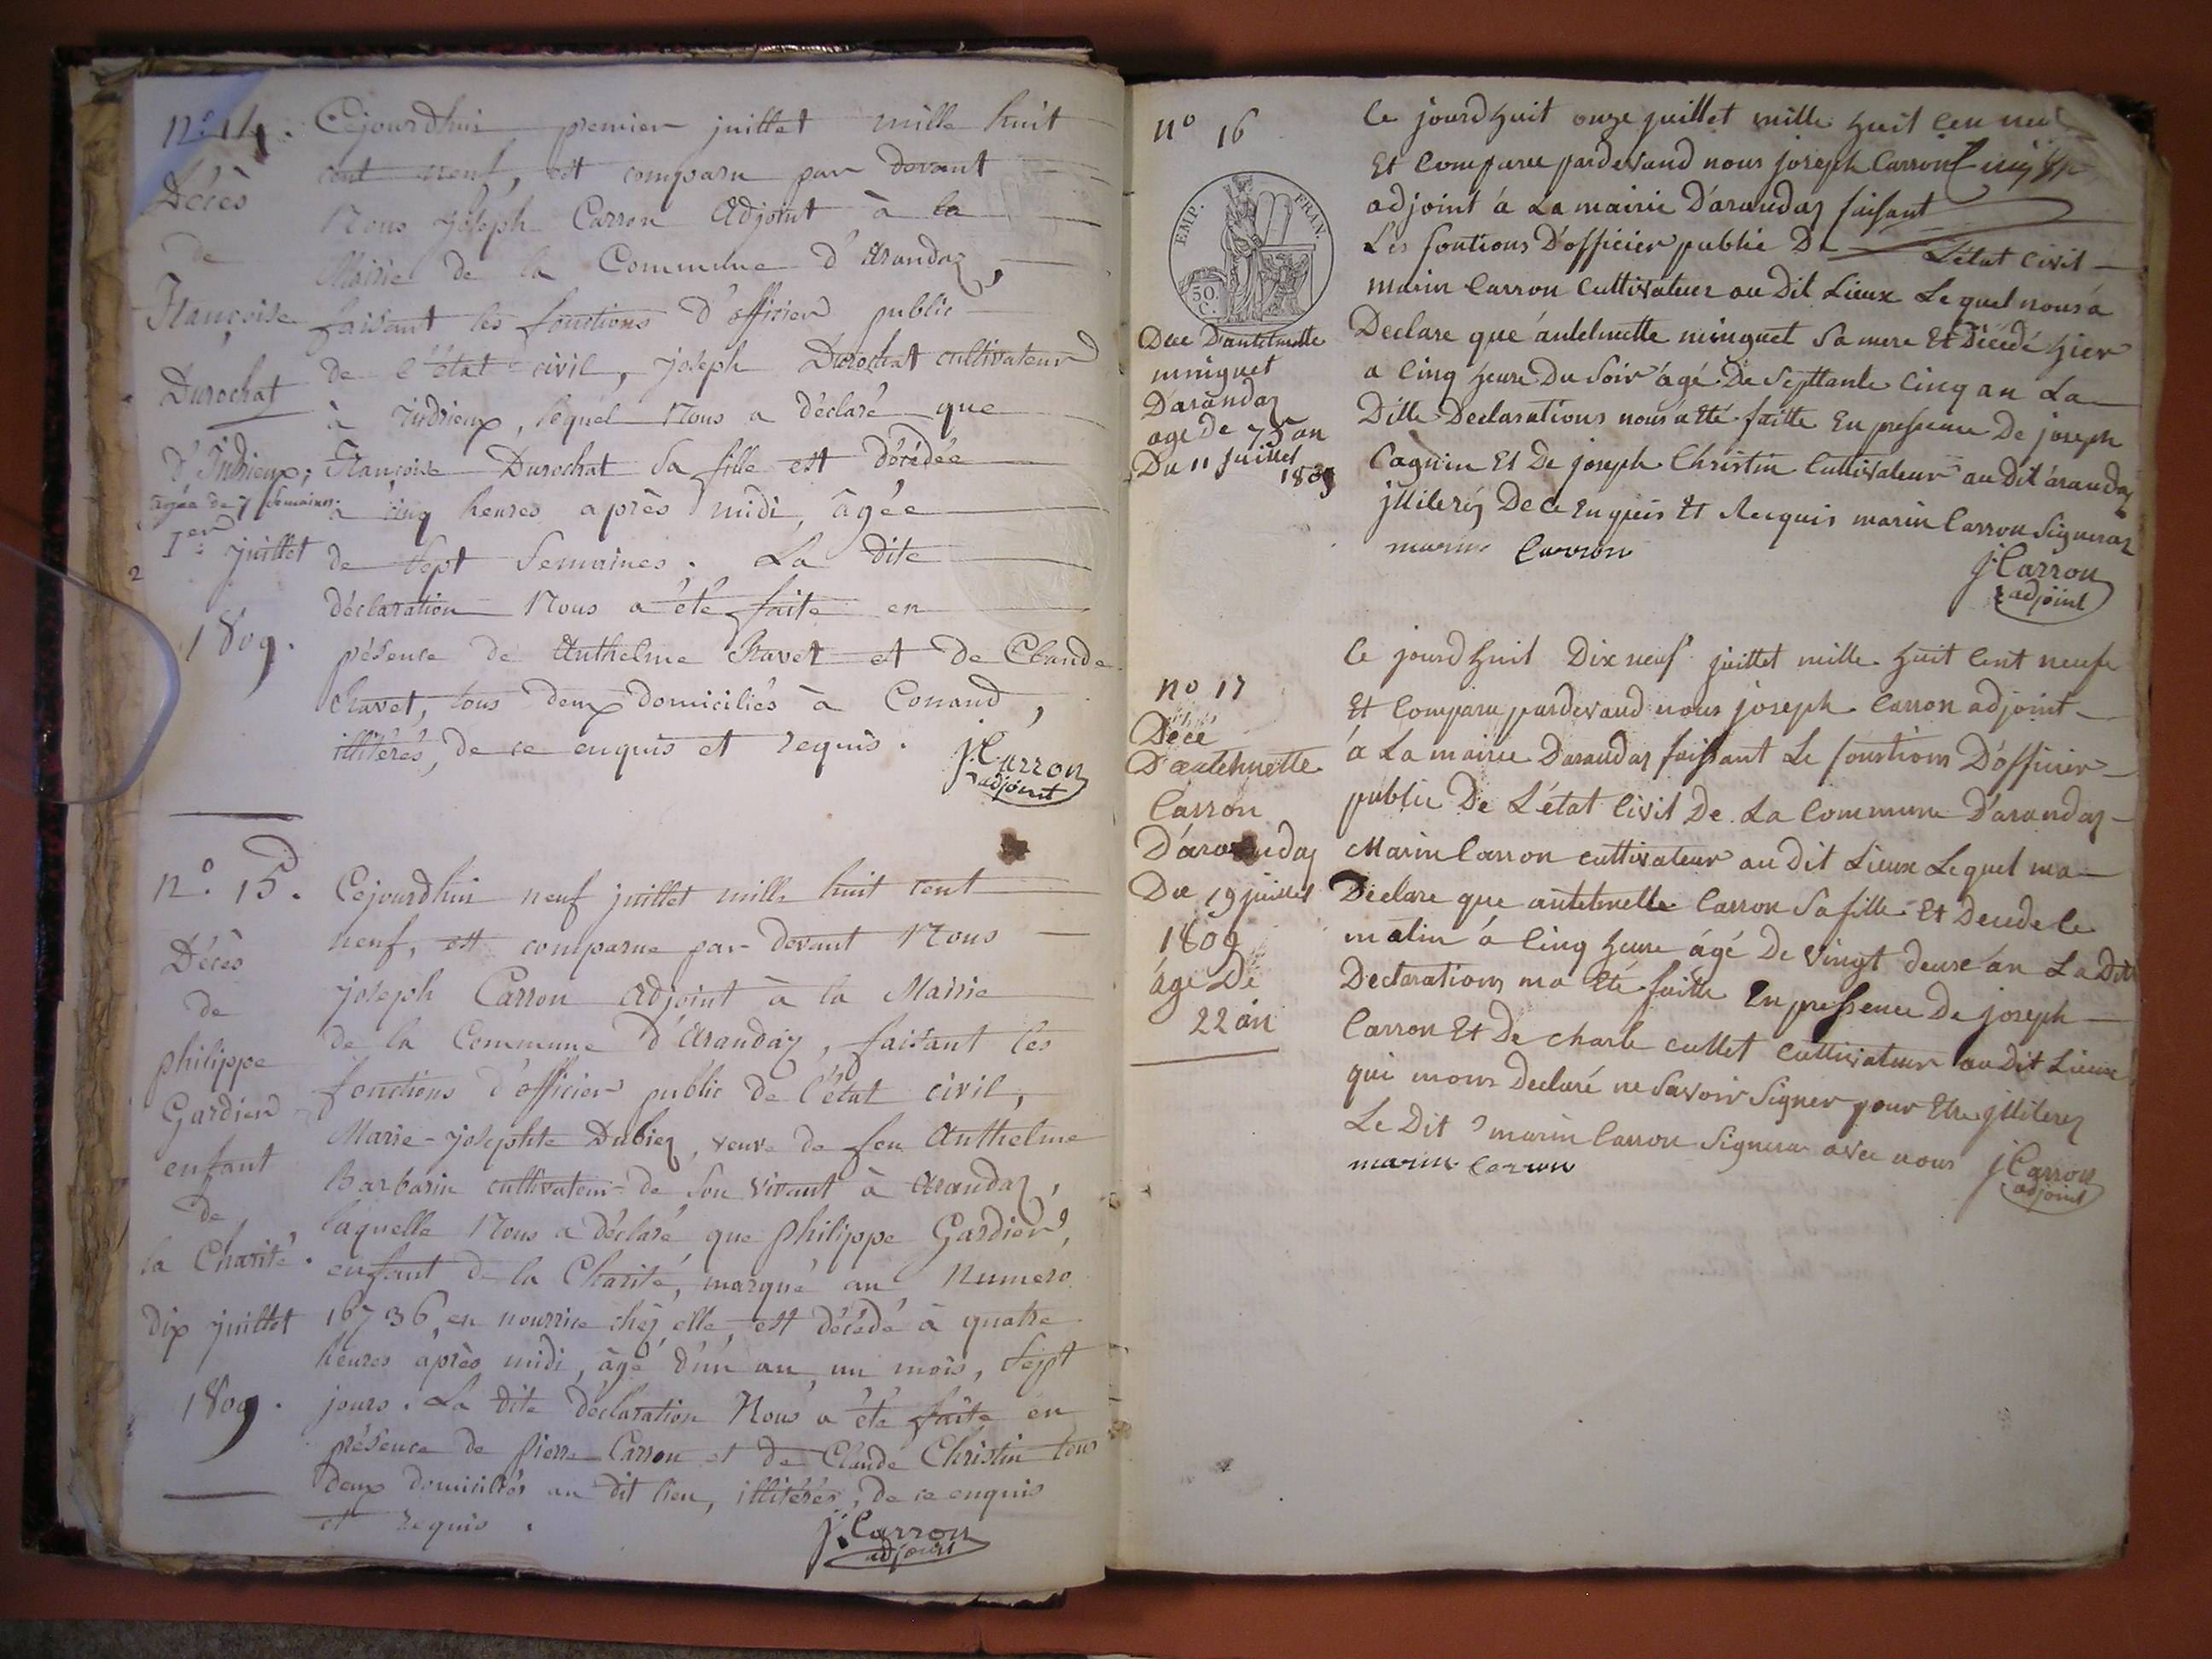 n.° 14.
Décès
de
Françoise
Durochat
d'Indrieux,
agée de 7 semaines.
1er juillet
1809.
Cejourdhui premier juillet mille huit
cent neuf, est comparu par devant
Nous Joseph Carron Adjoint à la
Mairie de la Commune d'Arandaz,
faisant les fonctions d'officier public
de l'état civil, joseph Durochat cultivateur
à Indrieux, lequel Nous a déclaré que
Françoise Durochat sa fille est décédée
à cinq heures après midi, âgée
de sept Semaines. La dite
déclaration Nous a été faite en
présence de Anthelme Chavet et de Claude
Chavet, tous deux domiciliés à Conand,
illitérés, de ce enquis et requis.
J. Carron
adjoint
n.° 15.
Décès
de
philippe
Gardien
enfant
de
la Charité.
dix juillet
1809.
Cejourdhui neuf juillet mille huit cent
neuf, est comparue par devant Nous
joseph Carron Adjoint à la Mairie
de la Commune d'Arandaz, faisant les
fonctions d'officier public de l'état civil,
Marie-josephte Dubiez, veuve de feu Anthelme
Barbarin cultivateur de son vivant à Arandaz,
laquelle Nous a déclaré que philippe Gardien,
enfant de la Charité, marqué au Numero
16736, en nourrice chéz elle, est décédé à quatre
heures après midi, âgé d'un an, un mois, sept
jours. La dite déclaration Nous a été faite en
présence de pierre Carron et de Claude Christin tous
deux domiciliés au dit lieu, illitérés, de ce enquis
et requis.
J. Carron
adjoint
n° 16
EMP. FRAN.
50. C.
Dece D'antelmette
minguet
D'arandaz
age de 75 an
Du 11 juillet
1809
Ce jourdhuit onze juillet mille huit cen neuf
Et Comparu pardevand nous joseph Carron
adjoint á La mairie D'arandaz faisant
Les fontions D'officier public De L'état Civil
marin Carron Cultivateur au Dit Lieux Le quel nous a
Declare que antelmette minguet Sa mere Et Décédé hier
a Cinq heure Du Soir ágé De Septtante Cinq an La
Ditte Declarations nous a Eté faitte En pressence De joseph
Cagnin Et De joseph Christin Cultivateur au Dit arandaz
jlliteréz De Ce Enquis Et Recquis marin Carron Signeraz
marin Carron
J. Carron
adjoint
no 17
Décé
D'antelmette
Carron
D'arandaz
Du 19 juillet
1809
áge De
22 an
Ce jourdhuit Dix neuf juillet mille huit Cent neufe
Et Comparu pardevaud nous joseph Carron adjoint
á La mairie Darandaz faissant Le fonctions D'officier
public De L'état Civil De La Commune D'arandaz
Marin Carron cultivateur au Dit Lieux Lequel ma
Declare que antelmette Carron Sa fille Et Decede le
matin á Cinq heure ágé De Vingt deuxe án La Ditte
Declarations ma Eté faitte En pressence De joseph
Carron Et De charle cullet Cultivateur au Dit Lieux
qui mons Declaré ne Savoir Signer pour Etre jlliterez
Le Dit marin Carron Signera avec nous
marin Carron
J Carron
adjoint